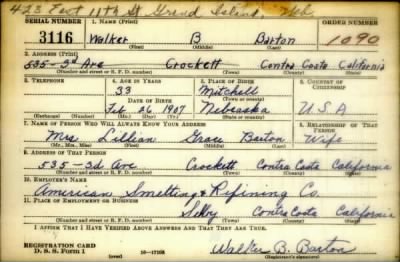 423 East 11th St Grand Island, Neb
SERIAL NUMBER 1. NAME (Print) ORDER NUMBER
3116 Walker B Barton 1090
(First) (Middle) (Last)
2. ADDRESS (Print)
535-3rd Ave Crockett Contra Costa California
(Number and street or R. F. D. number) (Town) (County) (State)
3. TELEPHONE 4. AGE IN YEARS 5. PLACE OF BIRTH 6. COUNTRY OF CITIZENSHIP
33 Mitchell
DATE OF BIRTH (Town or county)
Feb 26 1907 Nebraska U.S.A
(Exchange) (Number) (Mo.) (Day) (Yr.) (State or country)
7. NAME OF PERSON WHO WILL ALWAYS KNOW YOUR ADDRESS 8. RELATIONSHIP OF THAT PERSON
Mrs Lillian Grace Barton Wife
(Mr., Mrs., Miss) (First) (Middle) (Last)
9. ADDRESS OF THAT PERSON
535-3d Ave Crockett Contra Costa California
(Number and street or R. F. D. number) (Town) (County) (State)
10. EMPLOYER'S NAME
American Smelting & Refining Co.
11. PLACE OF EMPLOYMENT OR BUSINESS
Selby Contra Costa California
(Number and street or R. F. D. number) (Town) (County) (State)
I AFFIRM THAT I HAVE VERIFIED ABOVE ANSWERS AND THAT THEY ARE TRUE.
REGISTRATION CARD
D. S. S. Form 1 (over) 16-17105 Walker B. Barton
(Registrant's signature)